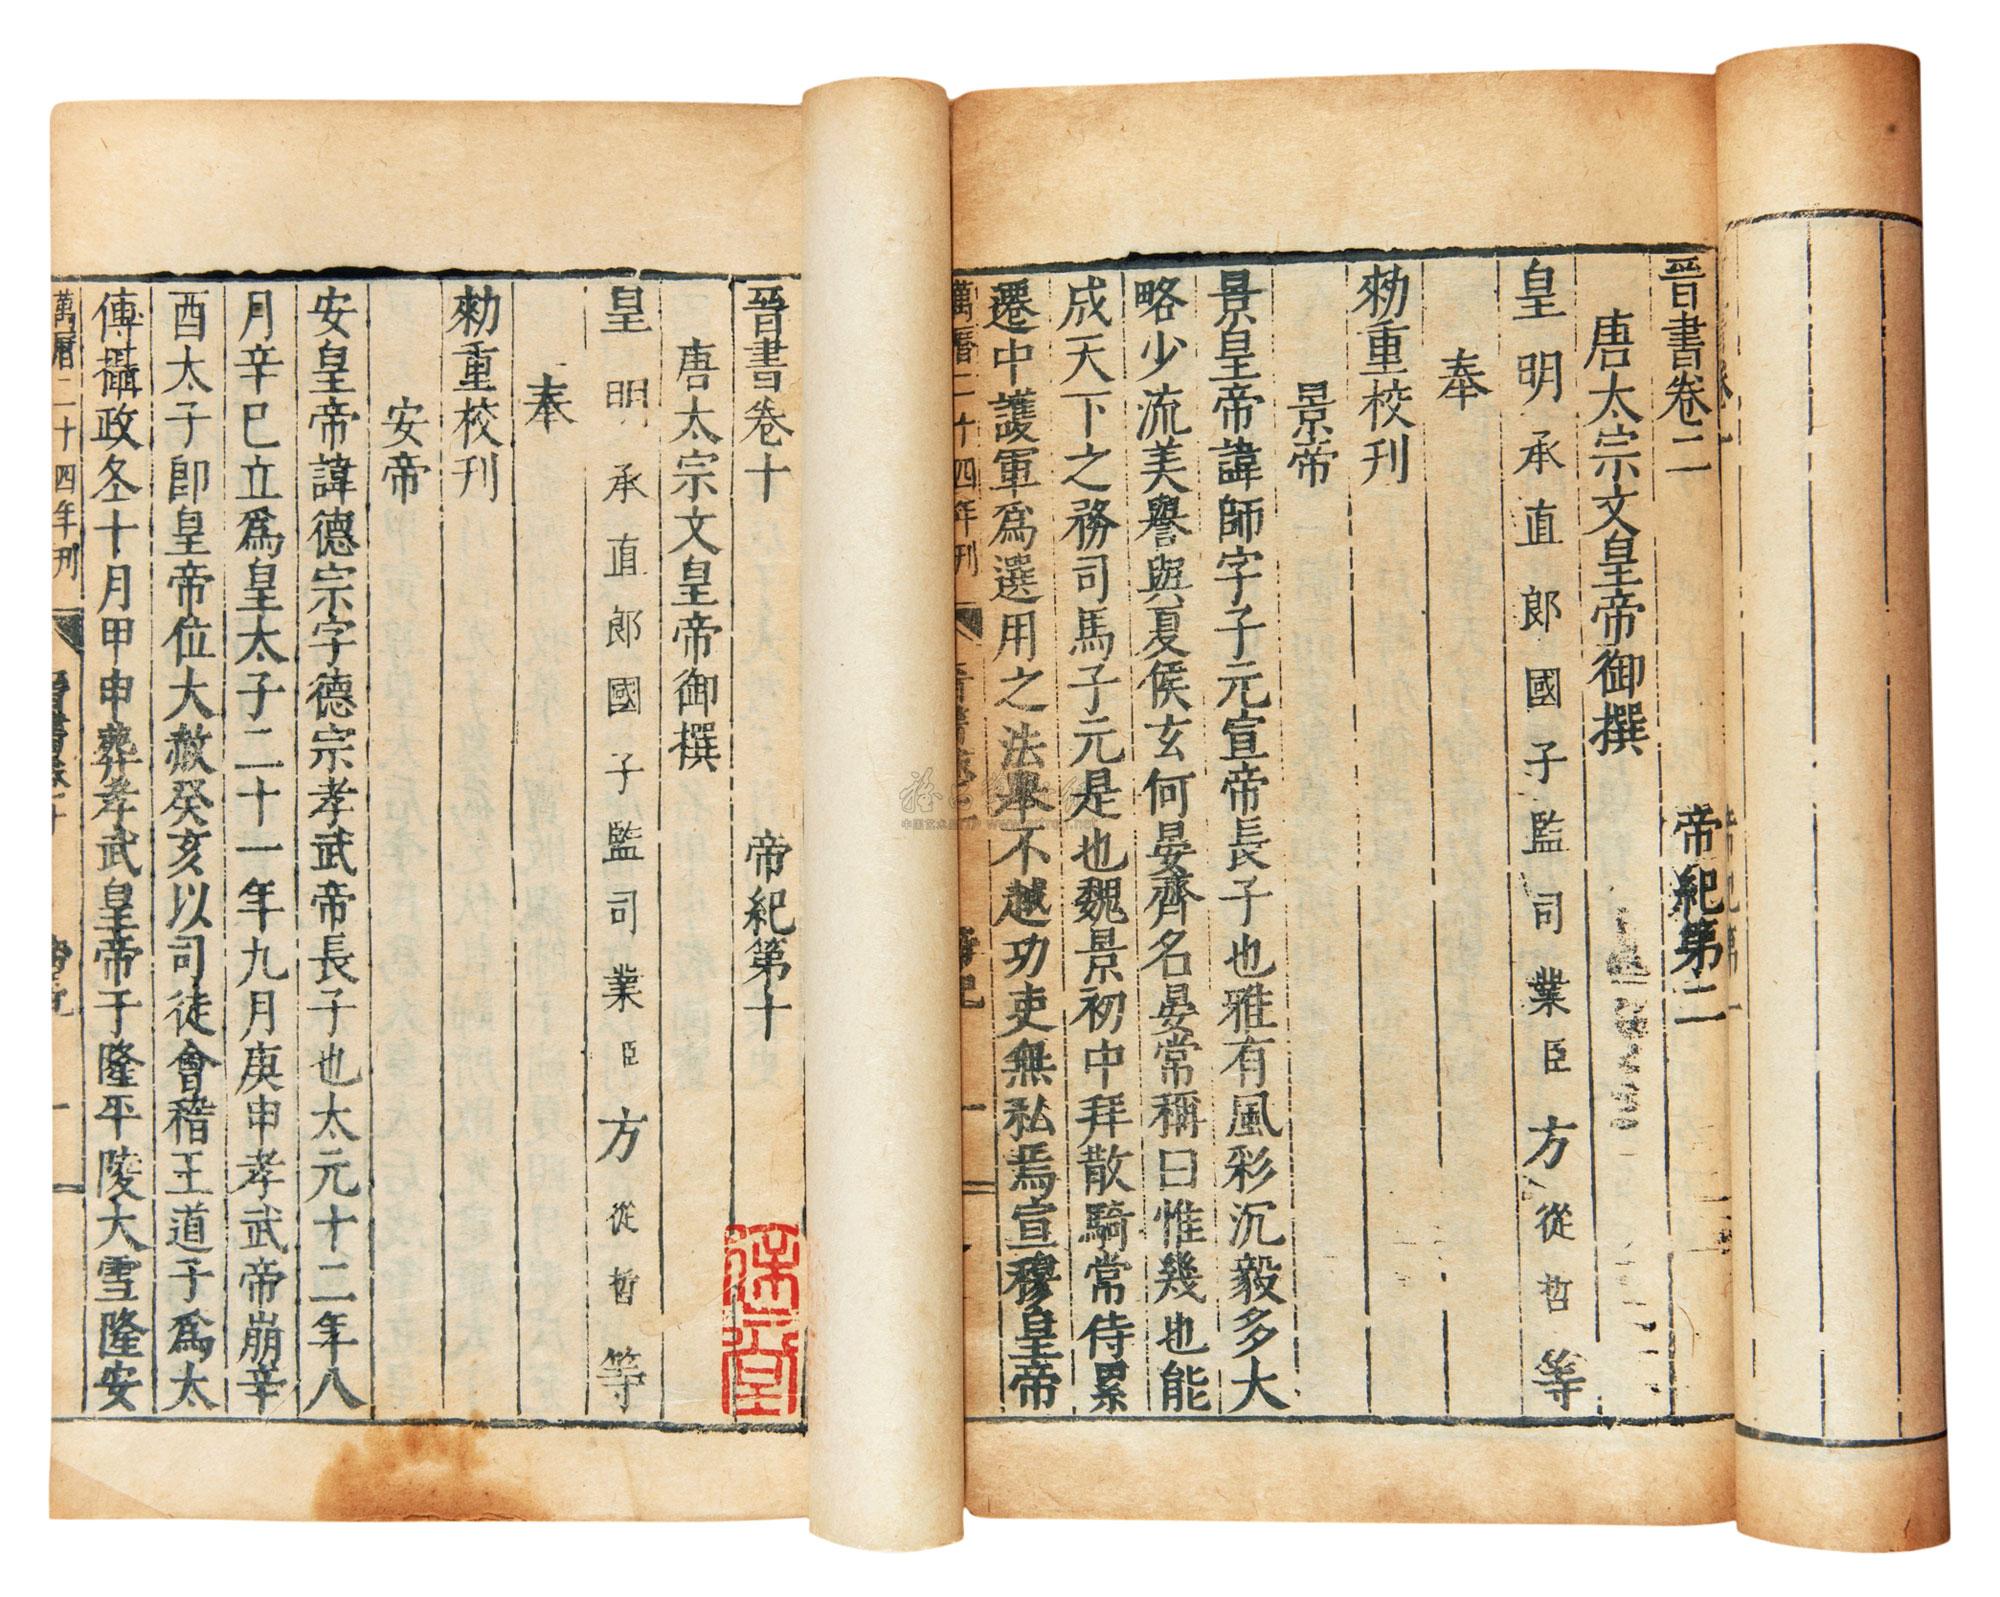 晉書卷二　帝紀第二
唐太宗文皇帝御撰
皇明承直郎國子監司業臣方從哲等
奉
勑重校刊
景帝
景皇帝諱師字子元宣帝長子也雅有風彩沉毅多大
略少流美譽與夏侯玄何晏齊名晏常稱曰惟幾也能
成天下之務司馬子元是也魏景初中拜散騎常侍累
遷中護軍爲選用之法舉不越功吏無私焉宣穆皇帝
萬曆二十四年刊
晉書卷十　帝紀第十
唐太宗文皇帝御撰
皇明承直郎國子監司業臣方從哲等
奉
勑重校刊
安帝
安皇帝諱德宗字德宗孝武帝長子也太元十二年八
月辛巳立爲皇太子二十一年九月庚申孝武帝崩辛
酉太子卽皇帝位大赦癸亥以司徒會稽王道子爲太
傅攝政冬十月甲申葬孝武皇帝于隆平陵大雪隆安
萬曆二十四年刊　晉書卷十